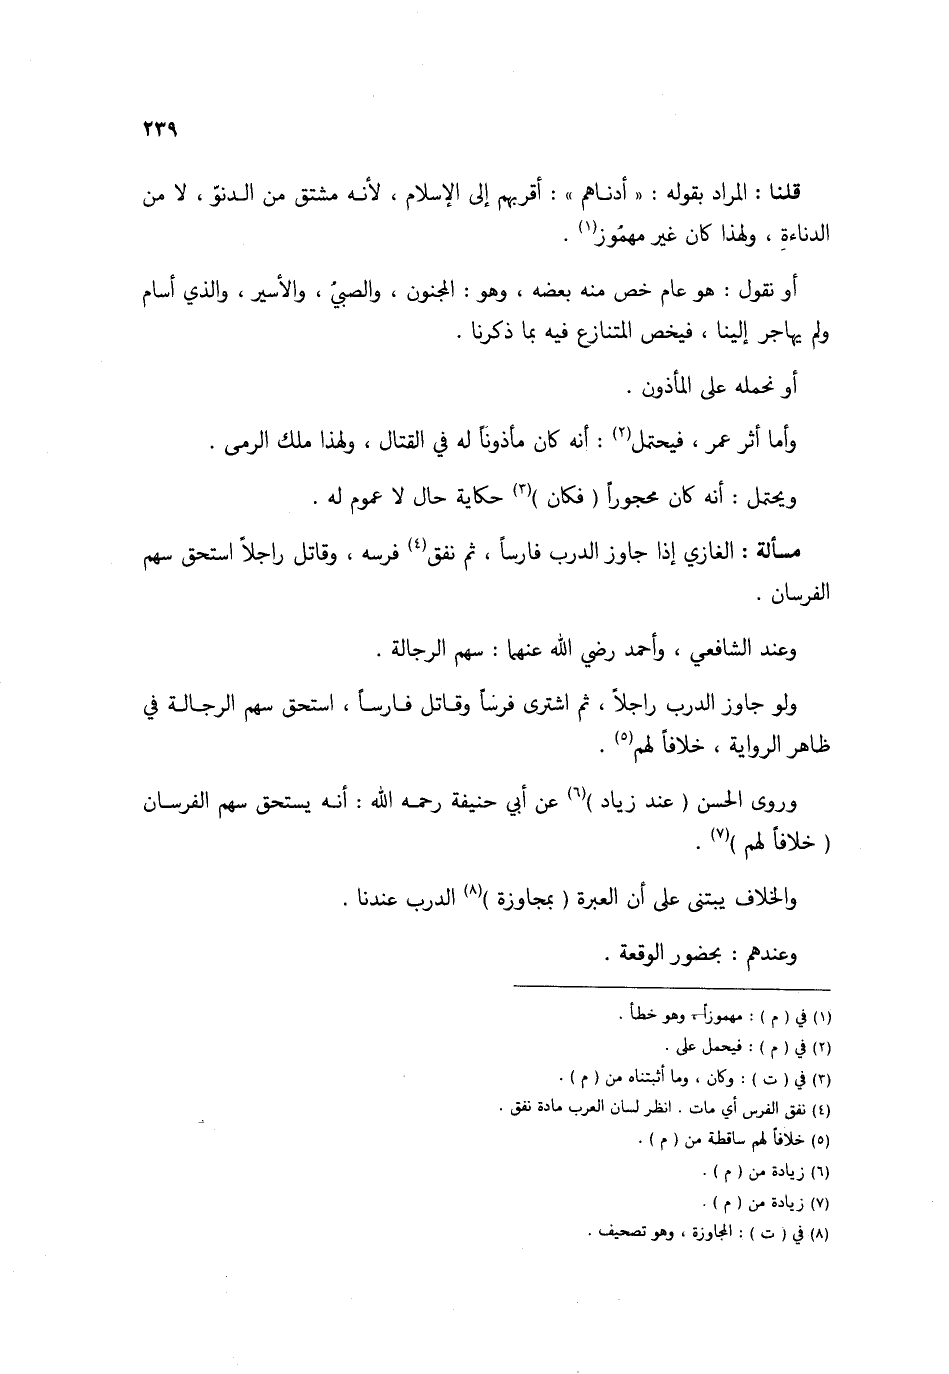 ٢٣٩
قلنا : المراد بقوله : « أدناهم » : أقربهم إلى الإسلام ، لأنه مشتق من الدنوّ ، لا من
الدناءة ، ولهذا كان غير مهمُوز(١) .
أو نقول : هو عام خص منه بعضه ، وهو : المجنون ، والصبيّ ، والأسير ، والذي أسام
ولم يهاجر إلينا ، فيخص المتنازع فيه بما ذكرنا .
أو نحمله على المأذون .
وأما أثر عمر ، فيحتمل(٢) : أنه كان مأذوناً له في القتال ، ولهذا ملك الرمى .
ويحتمل : أنه كان محجوراً ( فكان )(٣) حكاية حال لا عموم له .
مسألة : الغازي إذا جاوز الدرب فارساً ، ثم نفق(٤) فرسه ، وقاتل راجلاً استحق سهم
الفرسان .
وعند الشافعي ، وأحمد رضي الله عنهما : سهم الرجالة .
ولو جاوز الدرب راجلاً ، ثم اشترى فرساً وقاتل فارساً ، استحق سهم الرجالة في
ظاهر الرواية ، خلافاً لهم(٥) .
وروى الحسن ( عند زياد )(٦) عن أبي حنيفة رحمه الله : أنه يستحق سهم الفرسان
( خلافاً لهم )(٧) .
والخلاف يبتنى على أن العبرة ( بمجاوزة )(٨) الدرب عندنا .
وعندهم : بحضور الوقعة .
(١) في ( م ) : مهموزاً وهو خطأ .
(٢) في ( م ) : فيحمل على .
(٣) في ( ت ) : وكان ، وما أثبتناه من ( م ) .
(٤) نفق الفرس أي مات . انظر لسان العرب مادة نفق .
(٥) خلافاً لهم ساقطة من ( م ) .
(٦) زيادة من ( م ) .
(٧) زيادة من ( م ) .
(٨) في ( ت ) : المجاوزة ، وهو تصحيف .